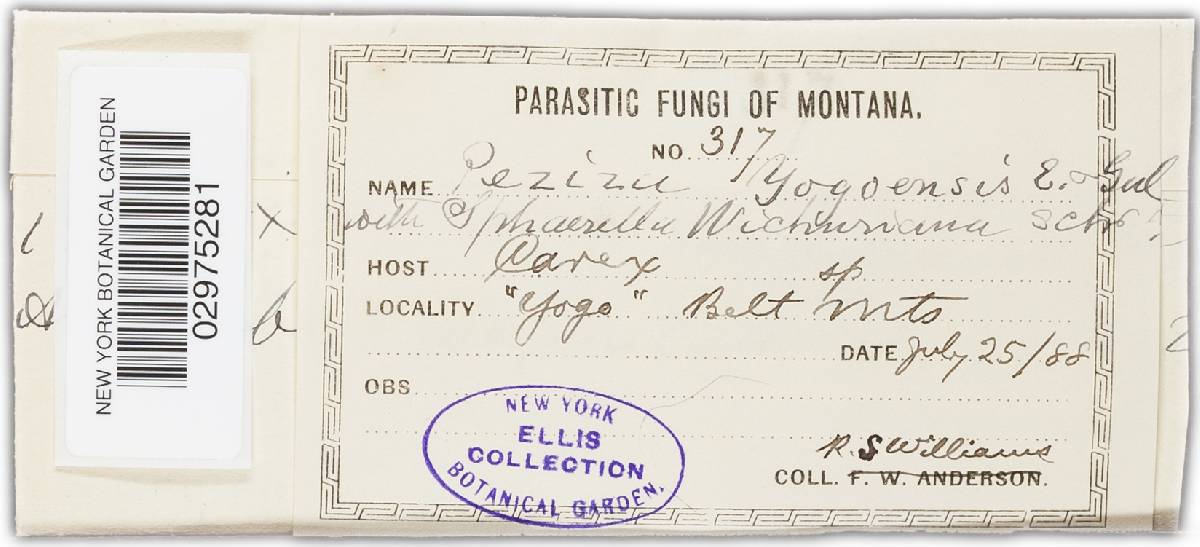 NEW YORK BOTANICAL GARDEN
02975281
PARASITIC FUNGI OF MONTANA.
NO. 317
NAME Peziza Yogoensis E. & Gal
with Sphaerella Wichuriana Schr.
HOST Carex sp
LOCALITY "Yogo" Belt Mts
DATE July 25/88
OBS.
NEW YORK
ELLIS
COLLECTION
BOTANICAL GARDEN.
R. S Williams
COLL. F. W. ANDERSON.